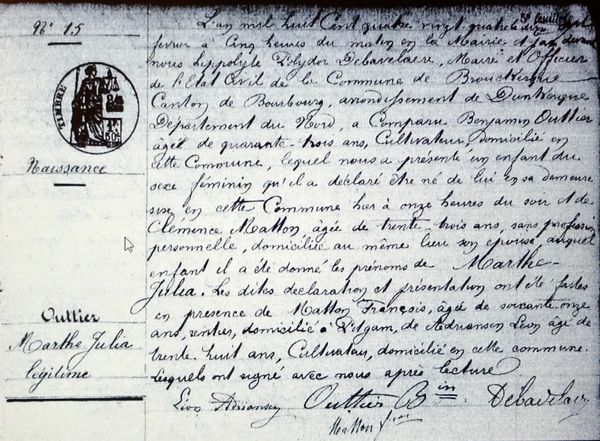 N° 15
TIMBRE
Naissance
Outtier
Marthe Julia
légitime
3e feuillet
L'an mil huit cent quatre vingt quatre le
février à cinq heures du matin en la Mairie et par devant
nous Hippolyte Pélydor Debavelaere, Maire et Officier
de l'Etat Civil de la Commune de Brouckerque
Canton de Bourbourg, arrondissement de Dunkerque
Département du Nord, a Comparu Benjamin Outtier
âgé de quarante-trois ans, Cultivateur, domicilié en
cette Commune, lequel nous a présenté un enfant du
sexe féminin qu'il a déclaré être né de lui en sa demeure
sise en cette Commune hier à onze heures du soir et de
Clémence Matton, âgée de trente-trois ans, sans profession
personnelle, domiciliée au même lieu son épouse, auquel
enfant il a été donné les prénoms de Marthe-
Julia. Les dites déclaration et présentation ont été faites
en présence de Matton François, âgé de soixante-onze
ans, rentier, domicilié à L'Efgam, de Adriansen Léon âgé de
trente-huit ans, Cultivateur, domicilié en cette commune.
Lesquels ont signé avec nous après lecture
Léon Adriansen Outtier Bin Debavelaere
Matton fois